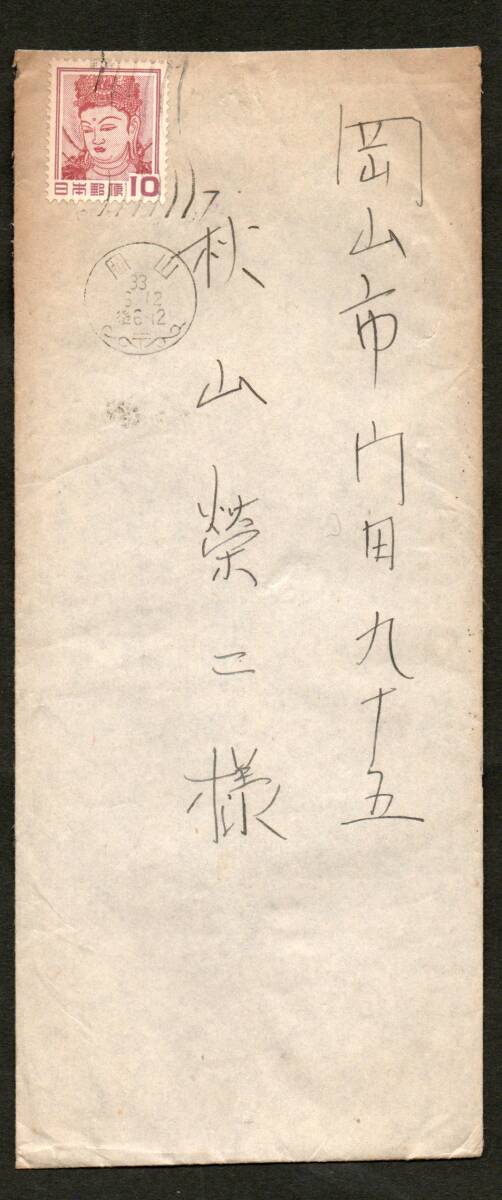 岡山市内田九十五
秋山榮二様
日本郵便 10
岡山
33
6.12
後6-12